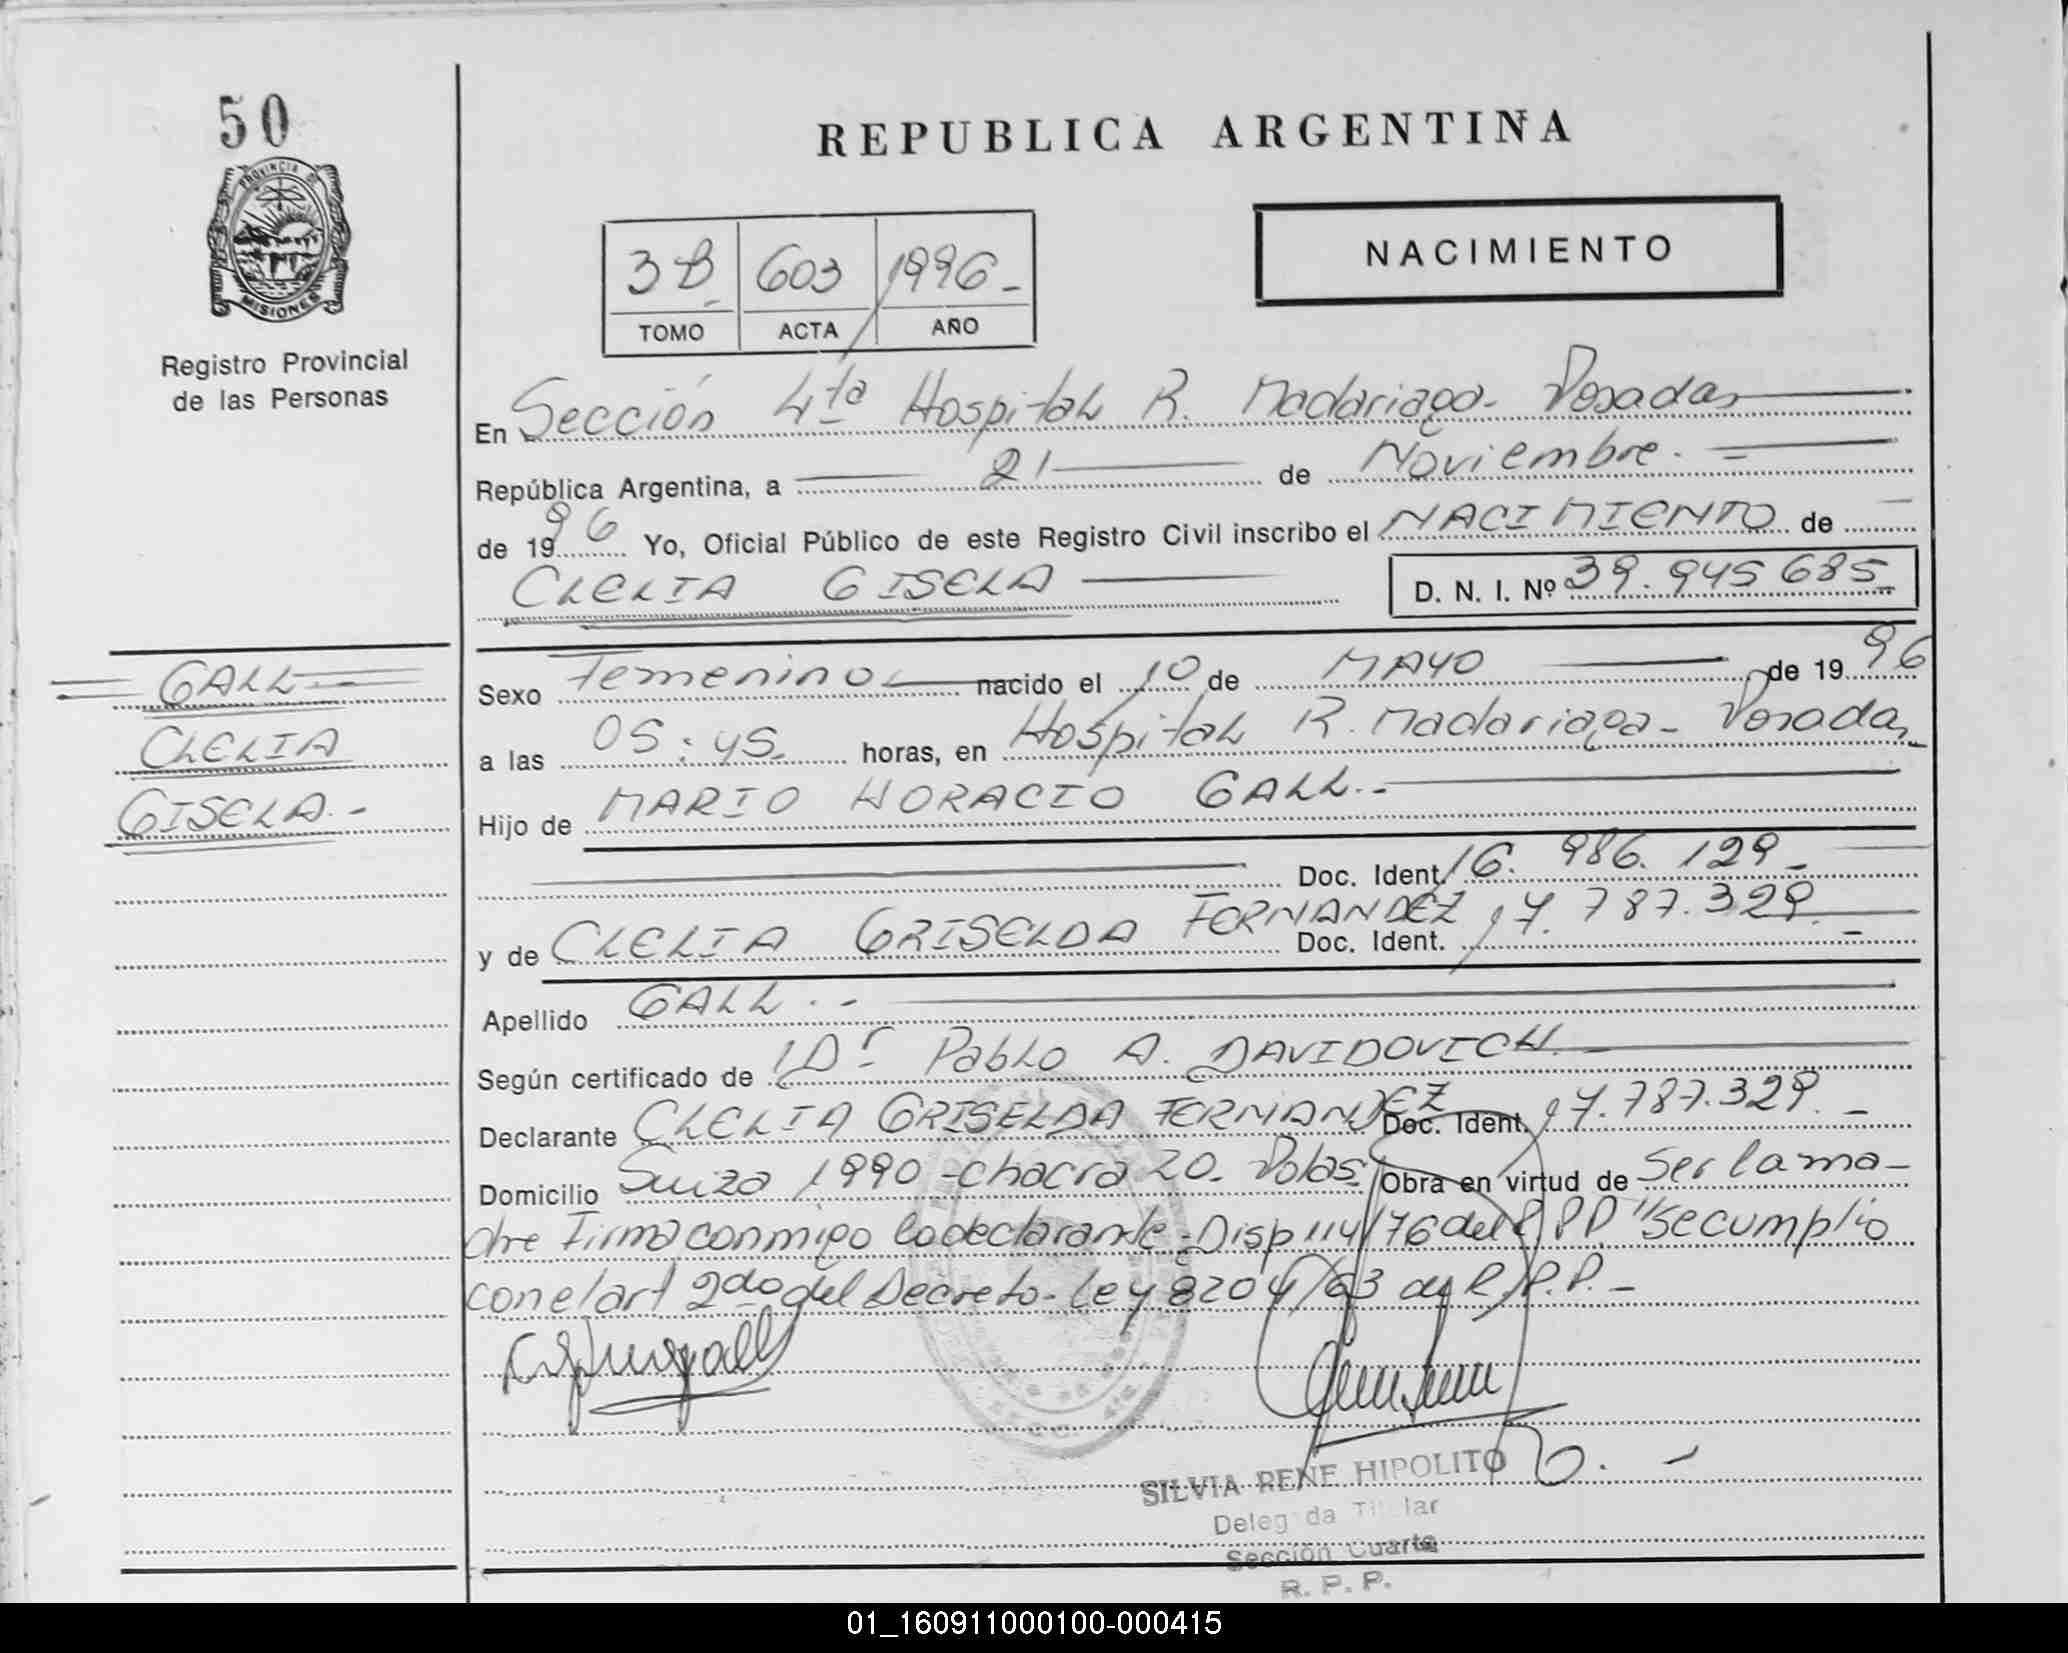 50
PROVINCIA DE
MISIONES
Registro Provincial
de las Personas
REPUBLICA ARGENTINA
3B 603 1996-
TOMO ACTA AÑO
NACIMIENTO
En Sección 4ta Hospital R. Madariaga- Posadas
República Argentina, a 21 de Noviembre.
de 1996 Yo, Oficial Público de este Registro Civil inscribo el NACIMIENTO de
CLELIA GISELA
D. N. I. Nº 39.945685-
GALL
CLELIA
GISELA.-
Sexo Femenino nacido el 10 de MAYO de 1996
a las 05:45. horas, en Hospital R. Madariaga- Posadas
Hijo de MARIO HORACIO GALL.-
Doc. Ident. 16.986.129-
y de CLELIA GRISELDA FERNANDEZ Doc. Ident. 17.787.329.-
Apellido GALL.-
Según certificado de Dr Pablo A. DAVIDOVICH.-
Declarante CLELIA GRISELDA FERNANDEZ Doc. Ident. 17.787.329.-
Domicilio Suiza 1990-chacra 20. Pdas. Obra en virtud de Ser la ma-
dre Firma conmigo la declarante-Disp 114/76 del R.P.P. "Se cumplio
con el art 2do del Decreto-Ley 8204/63 del R.P.P.-
SILVIA RENE HIPOLITO
Sección Cuarta
R. P. P.
01_160911000100-000415